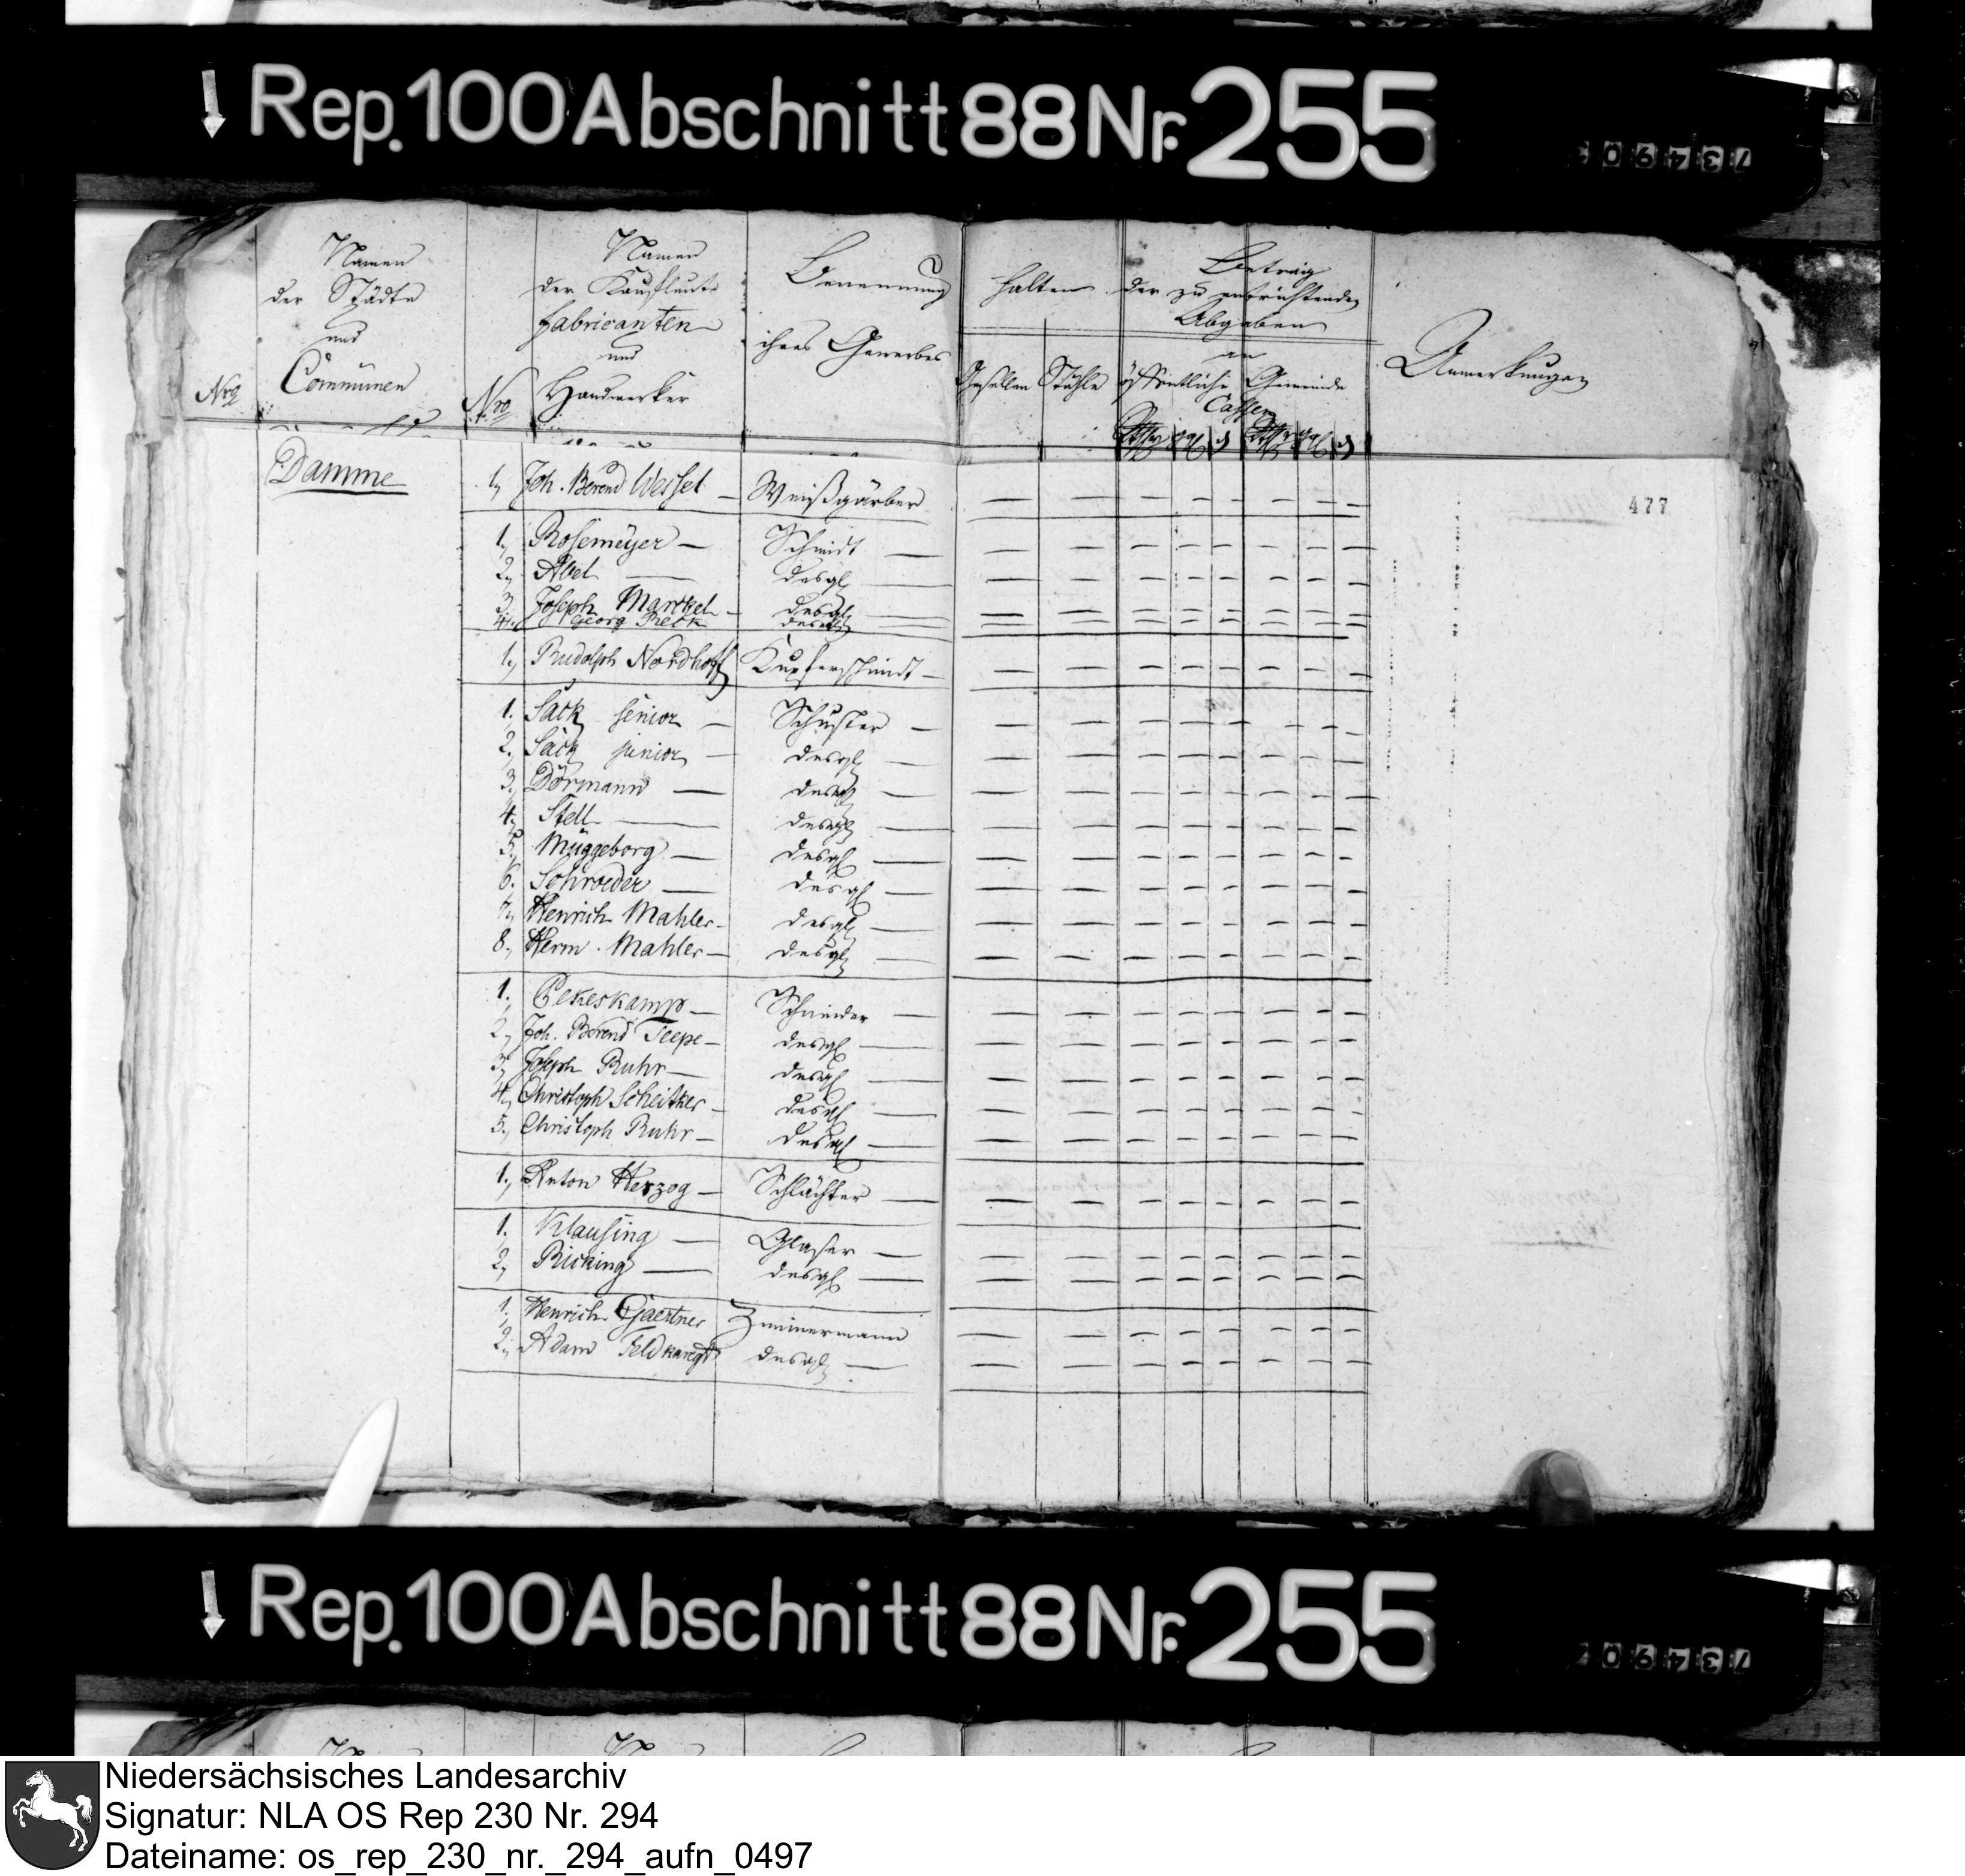 Rep. 100 Abschnitt 88 Nr. 255
734907
Nro
Namen
der Städte
und
Communen
Nro
Namen
der Kaufleute
Fabricanten
und
Handwerker
Benennung
ihres Gewerbes
halten
Gesellen Stühle
Betrag
der zu entrichtenden
Abgaben
an
öffentliche Gemeinde
Cassen
Anmerkungen
477
Damme
1, Joh. Berend Wessel — Weißgärber — — — — — — — —
1, Rosemeyer — Schmidt — — — — — — — — —
2, Abel — desgl — — — — — — — — —
3, Joseph Marckel — desgl — — — — — — — — —
4. Georg Reck desgl — — — — — — — — —
1, Rudolph Nordhoff Kupferschmidt — — — — — — — — —
1. Sack senior — Schuster — — — — — — — — —
2. Sack junior — desgl — — — — — — — — —
3. Dörmann — desgl — — — — — — — — —
4, Stell — desgl — — — — — — — — —
5, Müggeborg — desgl — — — — — — — — —
6. Schroeder — desgl — — — — — — — — —
7, Henrich Mahler — desgl — — — — — — — — —
8. Herm. Mahler — desgl — — — — — — — — —
1. Pekeskamp — Schneider — — — — — — — — —
2, Joh. Berend Teepe — desgl — — — — — — — — —
3, Joseph Ruhr — desgl — — — — — — — — —
4, Christoph Scheitker — desgl — — — — — — — — —
5. Christoph Ruhr — desgl — — — — — — — — —
1. Anton Herzog — Schlächter — — — — — — — — —
1. Klausing — Glaser — — — — — — — — —
2, Ricking — desgl — — — — — — — — —
1. Henrich Gaertner Zimmermann — — — — — — — —
2. Adam desgl — — — — — — — — —
Rep. 100 Abschnitt 88 Nr. 255
734907
Niedersächsisches Landesarchiv
Signatur: NLA OS Rep 230 Nr. 294
Dateiname: os_rep_230_nr._294_aufn_0497